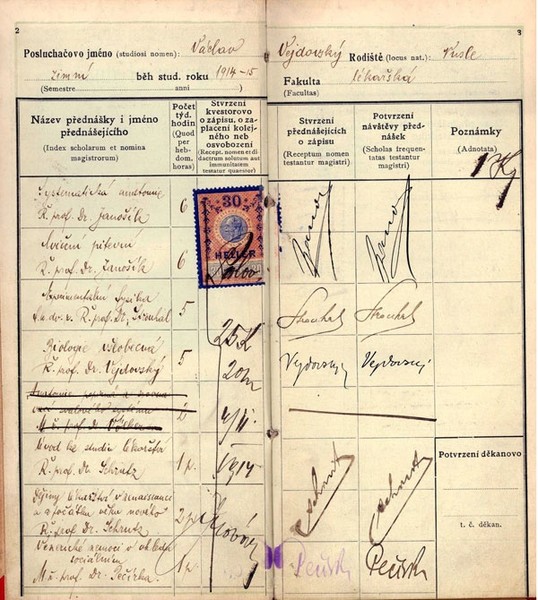 2
Posluchačovo jméno (studiosi nomen): Václav
zimní běh stud. roku 1914-15
(Semestre anni )
Název přednášky i jméno
přednášejícího
(Index scholarum et nomina
magistrorum)
Počet
týd.
hodin
(Quod
per
heb-
dom.
horas)
Stvrzení
kvestorovo
o zápisu, o za-
placení kolej-
ného neb
osvobození
(Recept. nomen et di
dactrum solutum aut
immunitatem
testatur quaestor)
Systematická anatomie
Ř. prof. Dr. Janošík
6
Cvičení pitevní
Ř. prof. Dr. Janošík
6
30
HELLER
Experimentální fysika
Ř. prof. Dr. Strouhal
5
25 K
Biologie všeobecná
Ř. prof. Dr. Vejdovský
5
20 h
Anatomie
2
4/11
Úvod ke studiu lékařství
Ř. prof. Dr. Schrutz
1
1914
Dějiny lékařství v renaissanci
a v počátku věku nového
Ř. prof. Dr. Schrutz
2
Venerické nemoci v ohledu
sociálním
Dr. Pečírka
1
3
Vejdovský Rodiště (locus nat.): Nusle
Fakulta lékařská
(Facultas)
Stvrzení
přednášejících
o zápisu
(Receptum nomen
testantur
magistri)
Potvrzení
návštěvy před-
nášek
(Scholas frequen-
tatas testantur
magistri)
Poznámky
(Adnotata)
Strouhal Strouhal
Vejdovský Vejdovský
Schrutz Schrutz
Potvrzení děkanovo
t. č. děkan.